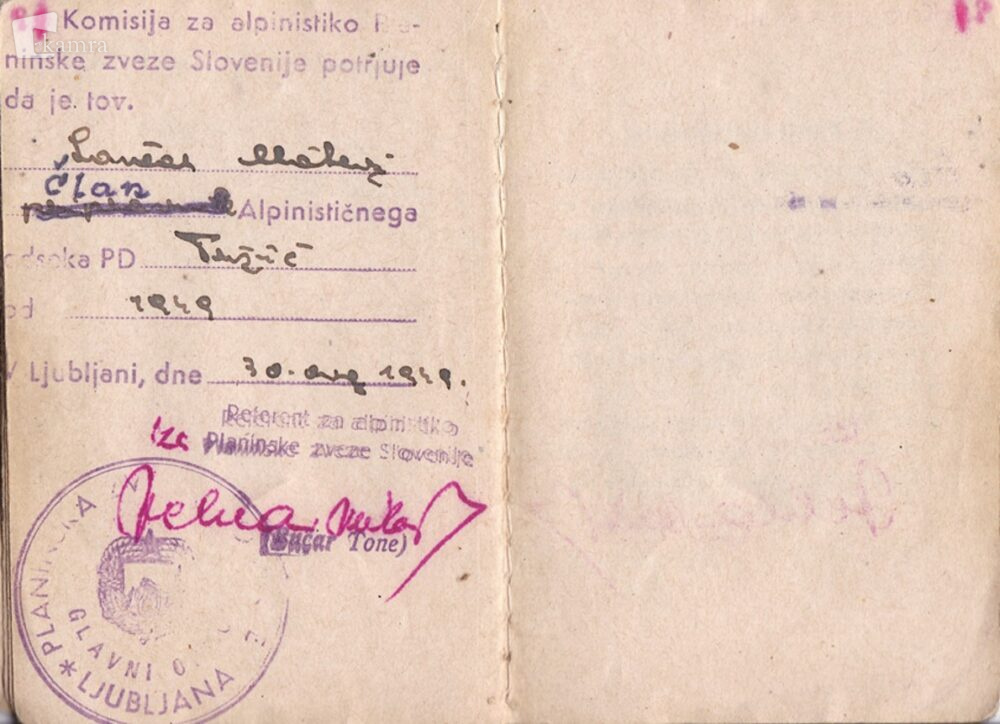 Komisija za alpinistiko Pla-
ninske zveze Slovenije potrjuje
da je tov.
Matevž
Član
Alpinističnega
odseka PD Tržič
od 1949
V Ljubljani, dne 30. avg 1949.
Referent za alpinistiko
za Planinske zveze Slovenije
(Bučar Tone)
PLANINSKA
GLAVNI O
* LJUBLJANA
kamra